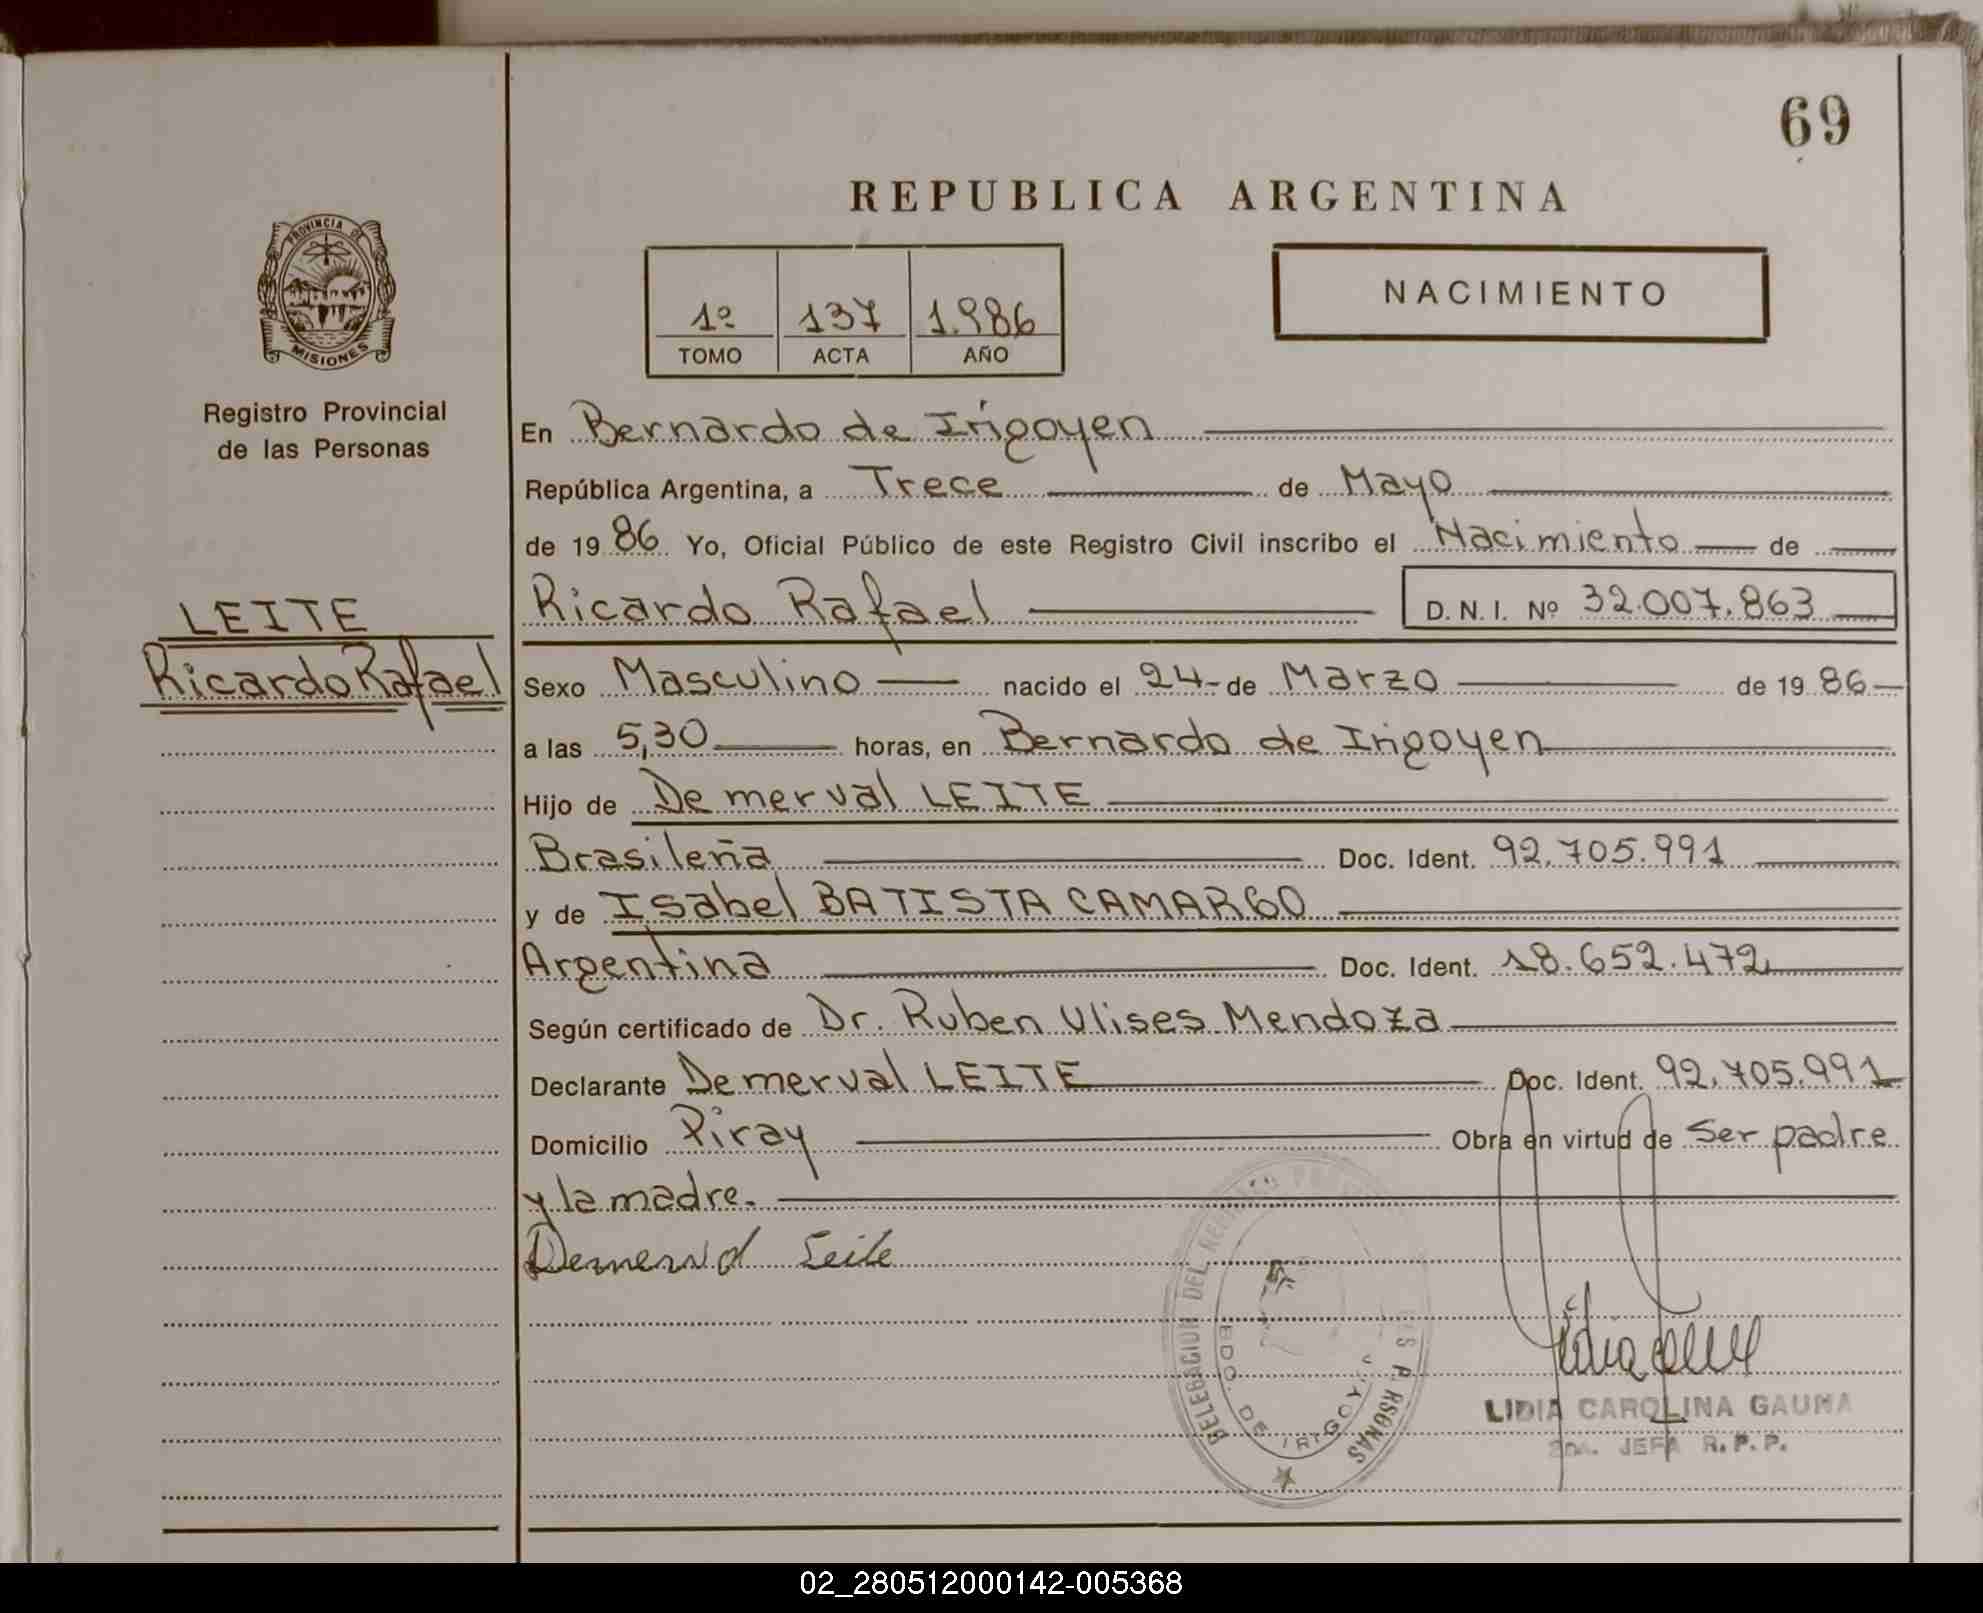 69
REPUBLICA ARGENTINA
PROVINCIA DE
MISIONES
Registro Provincial
de las Personas
1º 137 1.986
TOMO ACTA AÑO
NACIMIENTO
En Bernardo de Irigoyen
República Argentina, a Trece de Mayo
de 19 86 Yo, Oficial Público de este Registro Civil inscribo el Nacimiento de
LEITE
Ricardo Rafael
Ricardo Rafael D.N.I. Nº 32.007.863
Sexo Masculino nacido el 24 de Marzo de 19 86
a las 5,30 horas, en Bernardo de Irigoyen
Hijo de Demerval LEITE
Brasileña Doc. Ident. 92.705.991
y de Isabel BATISTA CAMARGO
Argentina Doc. Ident. 18.652.472
Según certificado de Dr. Ruben Ulises Mendoza
Declarante Demerval LEITE Doc. Ident. 92.705.991
Domicilio Piray Obra en virtud de Ser padre
y la madre.
Demerval Leite
DELEGACION DEL
BDO. DE IRIGOYEN
LIDIA CAROLINA GAUNA
JEFA R. P. P.
02_280512000142-005368